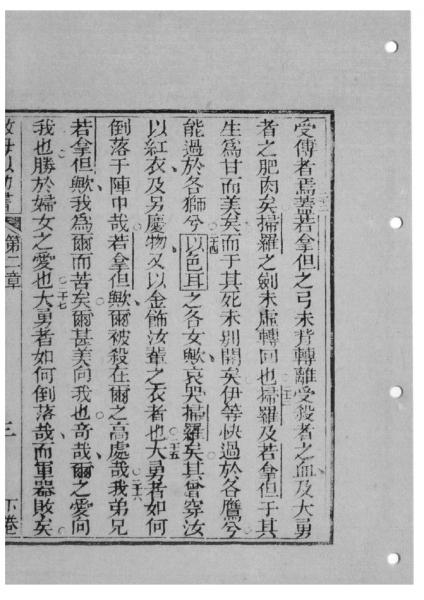 受傳者焉蓋若拿但之弓未背轉離受殺者之血及大勇
者之肥肉矣掃羅之劍未虛轉回也掃羅及若拿但于其
生爲甘而美矣而于其死未別開矣伊等快過於各鷹兮
能過於各獅兮以色耳之各女歟哀哭掃羅矣其曾穿汝
以紅衣及另慶物又以金飾汝輩之衣者也大勇者如何
倒落于陣中哉若拿但歟爾被殺在爾之高處哉我弟兄
若拿但歟我為爾而苦矣爾甚美向我也奇哉爾之愛向
我也勝於婦女之愛也大勇者如何倒落哉而軍器敗矣
第二章 三 下卷
二十三
二十四
二十五
二十六
二十七